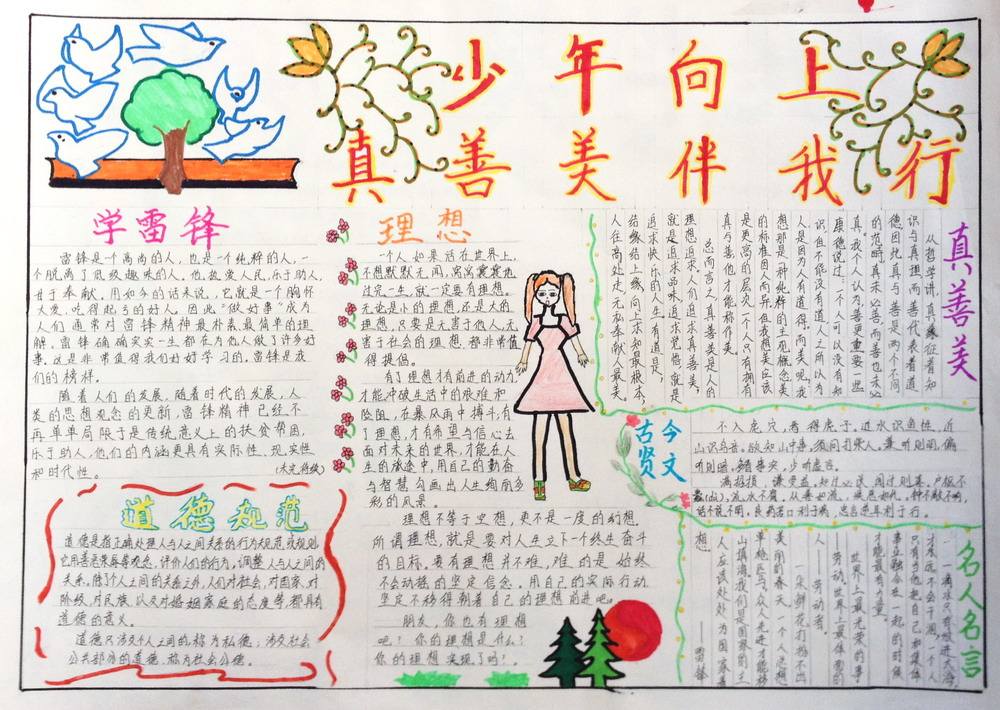 少年向上
真善美伴我行
学雷锋
雷锋是一个高尚的人,也是一个纯粹的人,一
个脱离了低级趣味的人。他热爱人民,乐于助人,
甘于奉献。用如今的话来说,它就是一个胸怀
大爱,吃得起亏的好人。因此“做好事”成为
人们通常对雷锋精神最朴素最简单的理
解。雷锋确确实实一生都在为他人做了许多好
事。这是非常值得我们好好学习的。雷锋是我
们的榜样。
随着人们的发展,随着时代的发展,人
类的思想观念的更新,雷锋精神已经不
再单单局限于是传统意义上的扶贫帮困,
乐于助人,他们的内涵更具有实际性、现实性
和时代性。
道德规范
道德是指正确处理人与人之间关系的行为规范或规则,
它用善恶荣辱等观念,评价人们的行为,调整人与人之间的
关系。除了个人之间的关系之外,人们对社会,对国家,对
阶级,对民族,以及对婚姻家庭的态度等,都具有
道德的意义。
道德只涉及个人之间的,称为私德;涉及社会
公共部分的道德,称为社会公德。
理想
一个人如果活在世界上,
不想默默无闻,窝窝囊囊地
过完一生,就一定要有理想。
无论是小的理想,还是大的
理想,只要是无害于他人,无
害于社会的理想,都非常值
得提倡。
有了理想才有前进的动力,
才能冲破生活中的艰难和
险阻,在暴风雨中搏斗;有
了理想,才有希望与信心去
面对未来的世界,才能在人
生的旅途中,用自己的勤奋
与智慧勾画出人生绚丽多
彩的风景。
理想不等于空想,更不是一度的幻想。
所谓理想,就是要对人生立下一个终生奋斗
的目标。要有理想并不难,难的是始终
不会动摇的坚定信念。用自己的实际行动
坚定不移得朝着自己的理想前进吧。
朋友,你也有理想
吧?你的理想是什么?
你的理想实现了吗?
真善美
从哲学讲,真象征着知
识与真理,而善代表着道
德因此真与善是两个不同
的范畴真未必善,而善也未必
真,我个人认为善更重要一些
康德说过:一个人可以没有知
识但不能没有道德人之所以为
人是因为人有道德,而美呢,我
想那是一种纯粹的主观概念美
的标准因人而异,但我想美应该
是更高的层次一个人只有拥有
真与善他才能称作美。
总而言之,真善美是人的
理想追求,人们追求真善美,
就是追求品味,追求觉悟,就是
追求快乐的人生有道是,
结缘结上缘,向上求知最根本,
人往高处走,无私奉献人最美。
古贤今文
不入虎穴,焉得虎子。近水识鱼性,近
山识鸟音。欲知山中事,须问打柴人。兼听则明,偏
听则暗。多听虚言。
满招损,谦受益。户枢不
蠹,流水不腐。从善如流,疾恶如仇。钟不敲不响,
话不说不明。良药苦口利于病,忠言逆耳利于行。
名人名言
一滴水只有放进大海,
才永远不会干涸,一个人
只有当他把自己和集体
事业融合在一起的时候
才能最有力量。
世界上最光荣的事
——劳动。世界上最体面的
人——劳动者。
一朵鲜花打扮不出
美丽的春天,一个人先进
单枪匹马,众人先进才能移
山填海。我们是国家的主
人应该处处为国家着
想。——雷锋